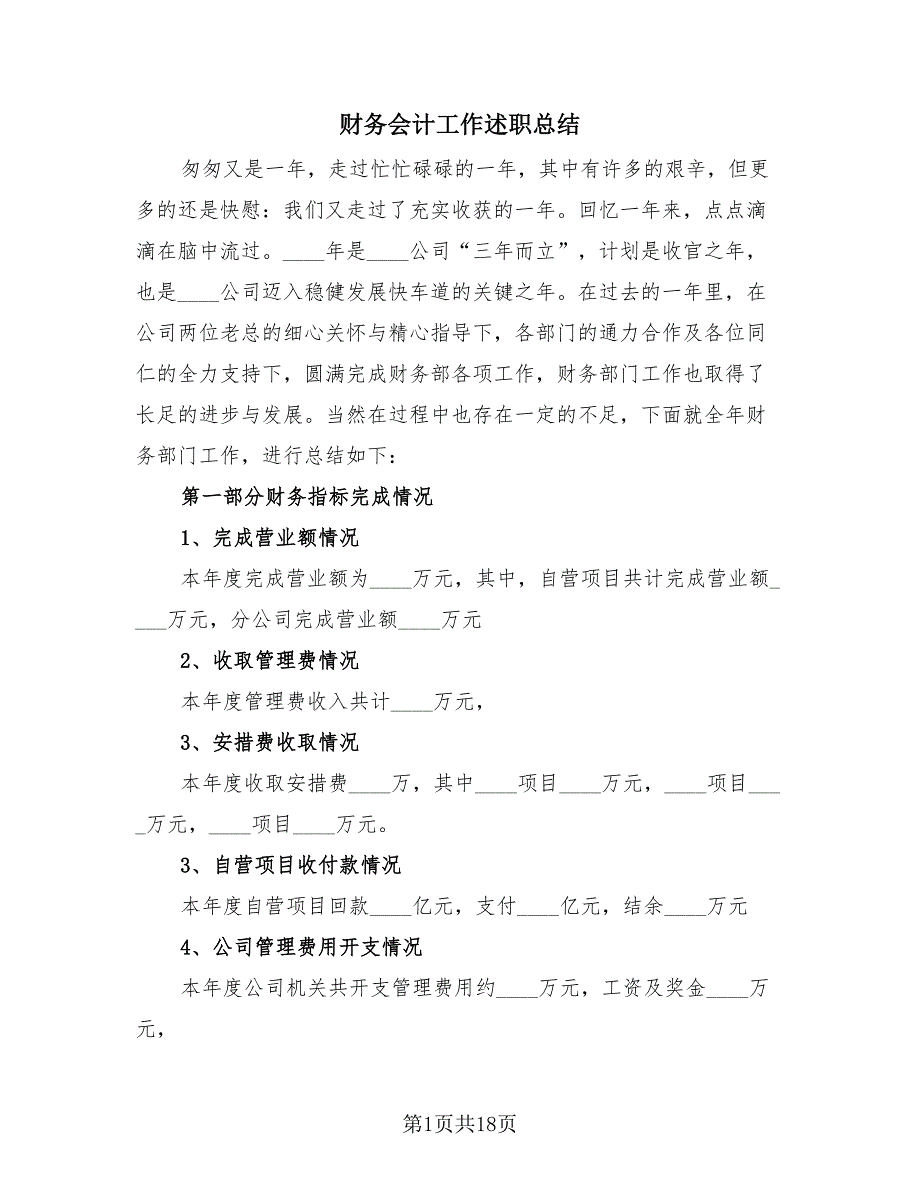 财务会计工作述职总结
匆匆又是一年，走过忙忙碌碌的一年，其中有许多的艰辛，但更
多的还是快慰：我们又走过了充实收获的一年。回忆一年来，点点滴
滴在脑中流过。____年是____公司“三年而立”，计划是收官之年，
也是____公司迈入稳健发展快车道的关键之年。在过去的一年里，在
公司两位老总的细心关怀与精心指导下，各部门的通力合作及各位同
仁的全力支持下，圆满完成财务部各项工作，财务部门工作也取得了
长足的进步与发展。当然在过程中也存在一定的不足，下面就全年财
务部门工作，进行总结如下：
第一部分财务指标完成情况
1、完成营业额情况
本年度完成营业额为____万元，其中，自营项目共计完成营业额_
___万元，分公司完成营业额____万元
2、收取管理费情况
本年度管理费收入共计____万元，
3、安措费收取情况
本年度收取安措费____万，其中____项目____万元，____项目___
_万元，____项目____万元。
3、自营项目收付款情况
本年度自营项目回款____亿元，支付____亿元，结余____万元
4、公司管理费用开支情况
本年度公司机关共开支管理费用约____万元，工资及奖金____万
元，
第1页共18页